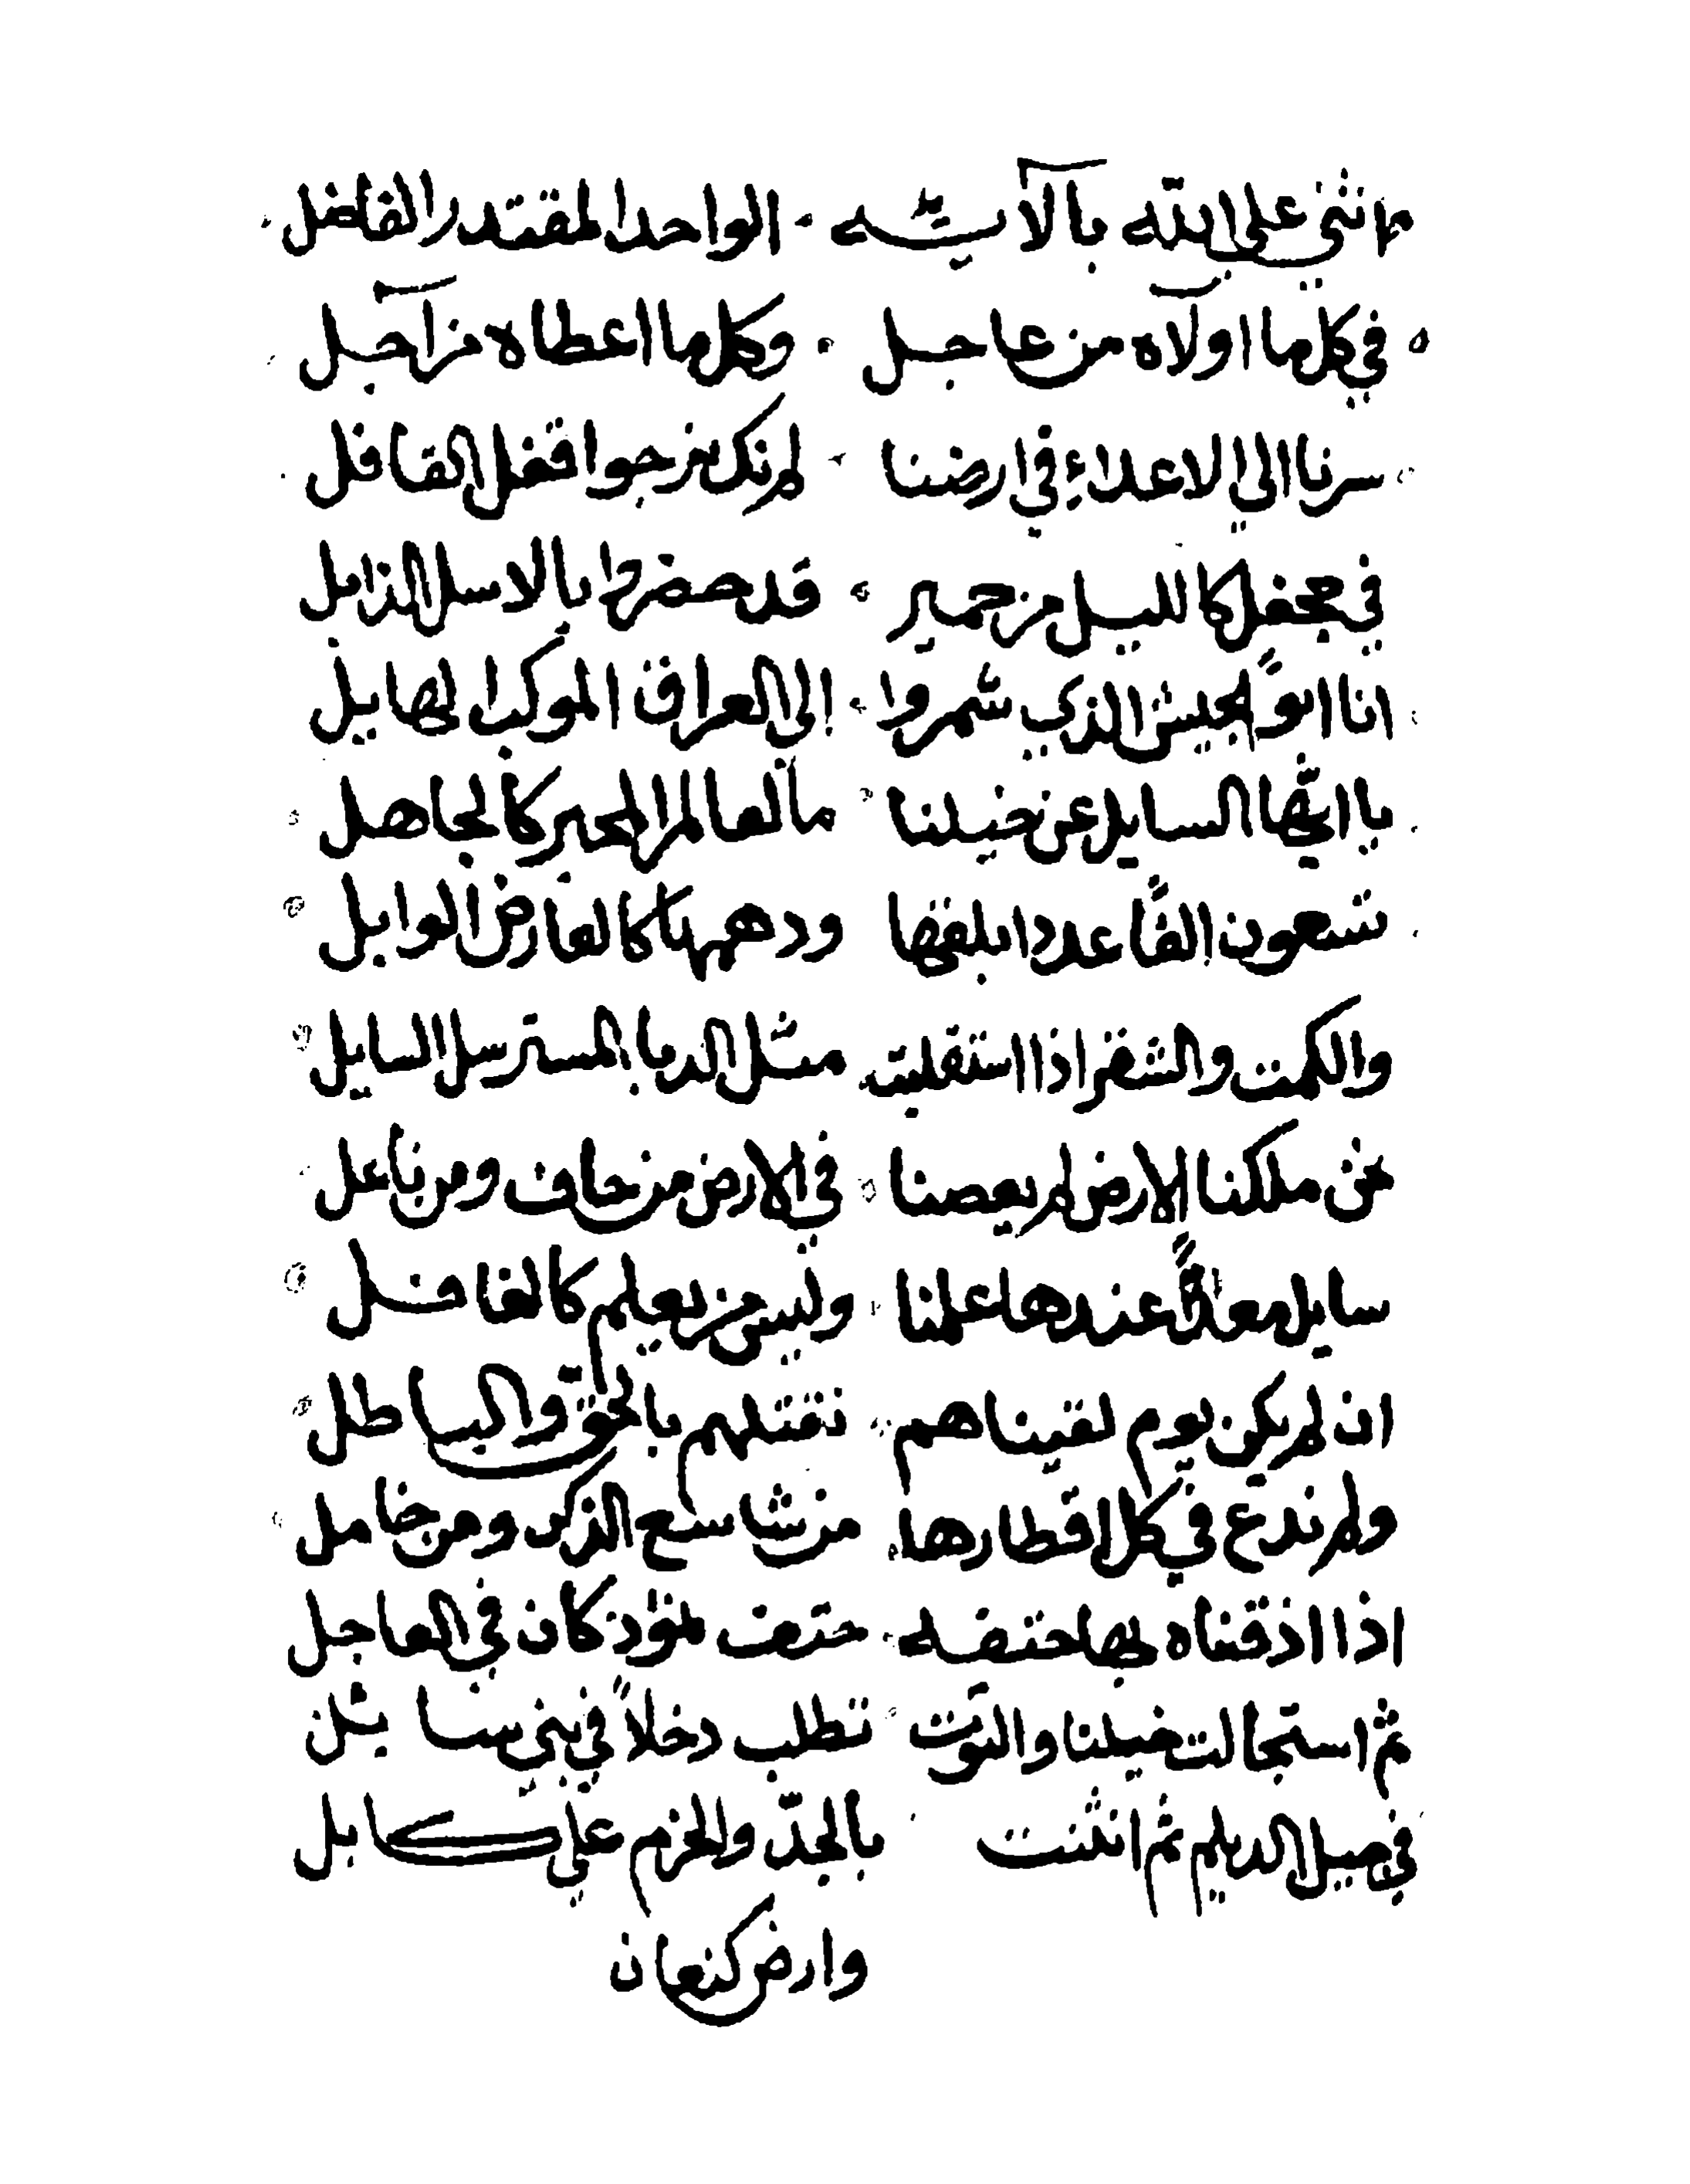 اثني على الله بالآيه الواحد المقتدر الفاضل
في كل ما اولاه من عاجل وكل ما اعطاه من آجل
سرنا الى الاعداء في ارضنا لم نكن نرجوا قفل القافل
في جحفل كالليل من حمير قد حضرنا بالاسل الذابل
انا ابو الجيش الذي شمروا الى العراق الموكب الهايل
يا ايّها السايل عن خيلنا ما العالم المخبر كالجاهل
تسعون الفًا عددا بلقها ودهمها كالعارض الوابل
والكمت والشقر اذا استقبلت مثل الدبا المسترسل السايل
نحن ملكنا الارض لم يعصنا في الارض من حاف ومن ناعل
سايل معدًّا عندها علمنا وليس من يعلم كالغافل
ان لم يكن يوم لقيناهم نقتلهم بالحق والباطل
ولم ندع في كل اقطارها من شاسع الذكر ومن خامل
اذا اذقناه بها حتفه حتف كان في العاجل
ثم استجالت خيلنا والتوت تطلب دخلاً في بني
في الديلم ثم انثنت بالجدّ والحزم على كابل
وارض كنعان